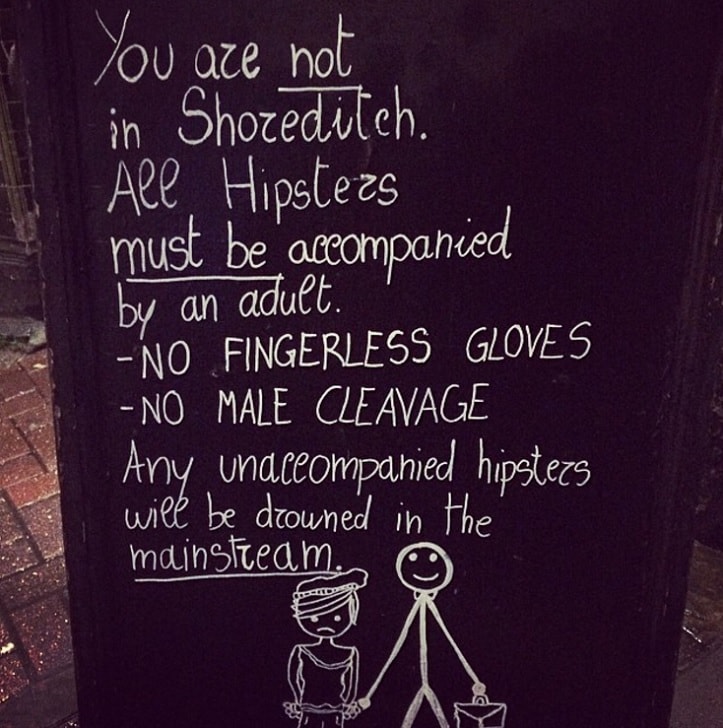 You are not
in Shoreditch.
All Hipsters
must be accompanied
by an adult.
-NO FINGERLESS GLOVES
-NO MALE CLEAVAGE
Any unaccompanied hipsters
will be drowned in the
mainstream.